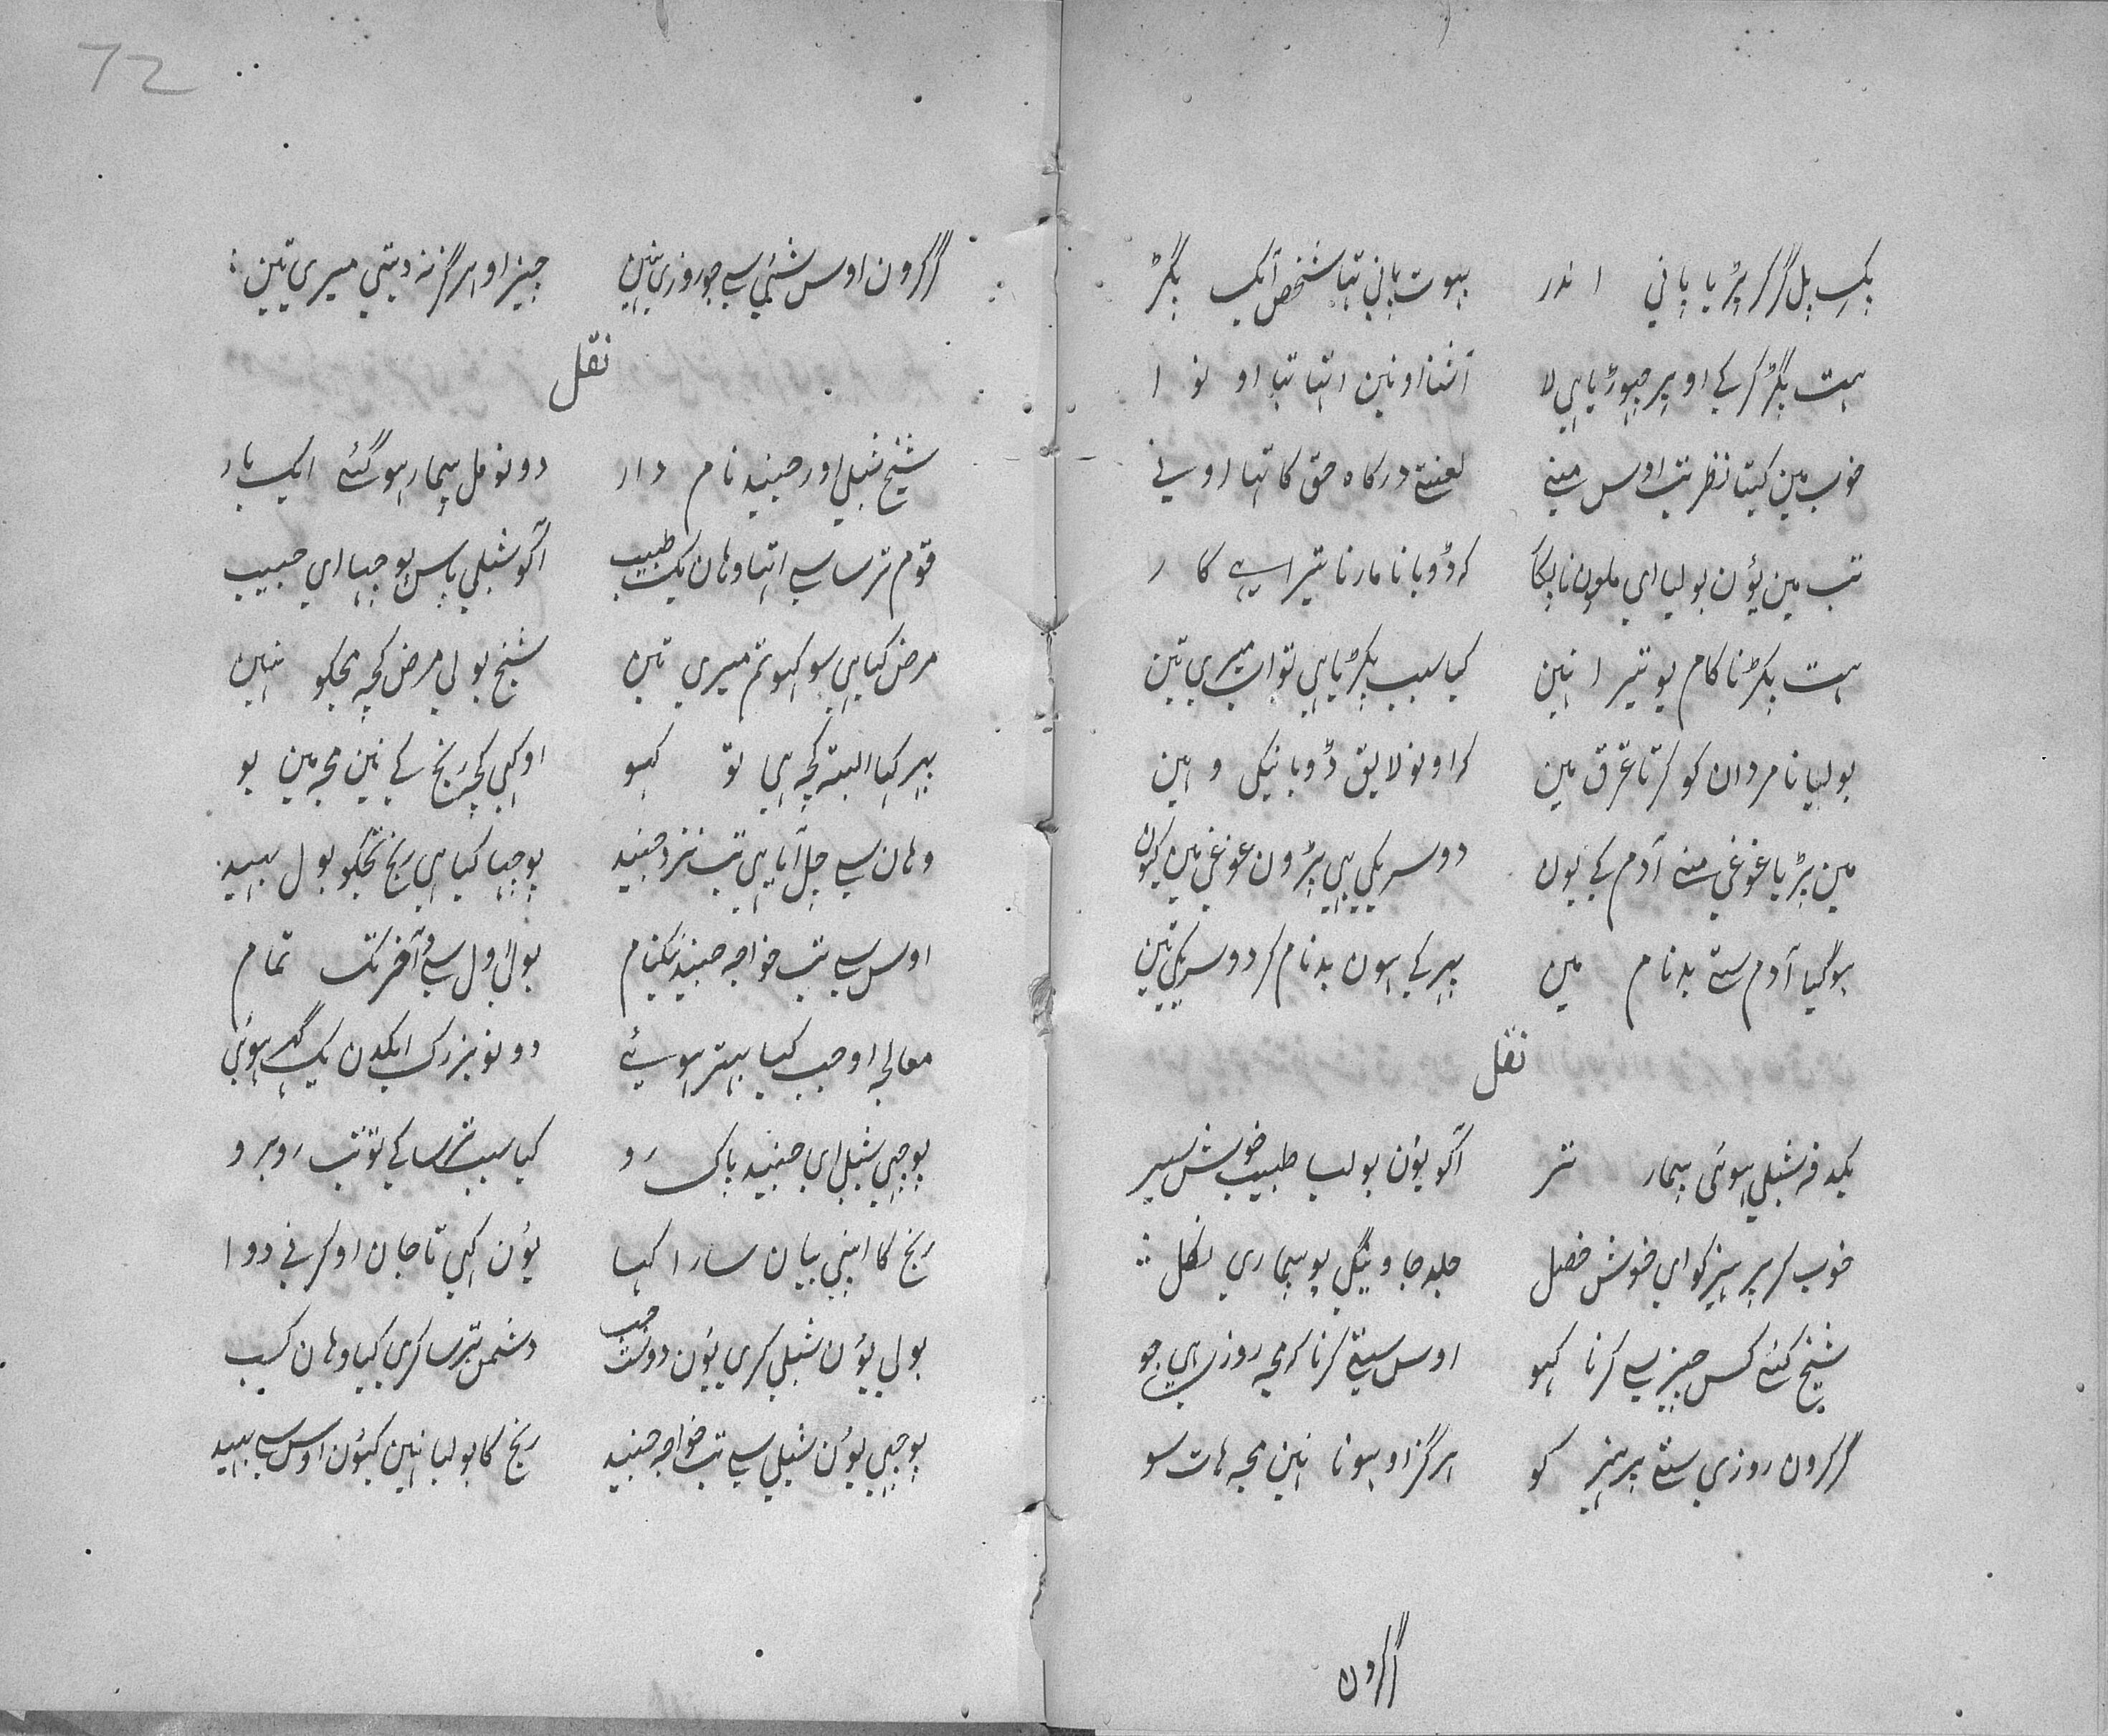 یک پل گر کر پڑیا پانی اندر بہوت پانی تہا شخص ایک پگڑ
ہت پگڑ کر کے اوپر چہوڑیا ہی لا آشنا او نین اتہا تہا او نو ا
خوب مین کیتا نظر تب اوس منے لعنتے درکاہ حق کا تہا اونے
تب مین یؤن بولیا ای ملعون نابکا کہ ڈوبانا مارنا تیرا ہے کا ر
ہت پکڑنا کام یو تیر ا نین کیا سبب پکڑیا ہی تو اب میری تین
بولیا نا مردان کو کرتا غرق مین کہ اونو لایق ڈوبانیکی و ہین
مین پڑیا غوغی منے آدم کے یون دوسریکی ہی پڑون غوغی مین کیون
ہو گیا آدم ستے بدنام مین پہر کے ہون بدنام کر دوسریکی تین
نقل
یکدفہ شبلی ہوئی بیمار تر آکو یون بولیا طبیب خوش سیر
خوب کر پرہیز کو ای خوش خصل جلد جاویگی یو بیماری نکل
شیخ کئے کس چیز سے کرنا کہو اوس ستے کرنا کہ مجہ روزی ہی جو
گر کرون روزی ستے پرہیز کو ہرگز او ہونا نہین مجہ ہات سو
اگر کرون
72
اگر کرون اوس شئی سے جو روزی نہین چیز او ہرگز نہ دیتی میری تین
نقل
شیخ شبلی اور جنید نام دار دونو مل بیمار ہو گئے ایک بار
قوم ترسا سے اتہا وہان یک طبیب آکو شبلی پاس پوچہا ای حبیب
مرض کیا ہی سو کہو تم میری تین شیخ بولی مرض کچہ مجکو نہین
پہر کہا البتہ کچہ ہی تو کہو او کہی کچہ رنج کے نین مجہ مین بو
وہان سے چل آیا ہی تب نزد جنید پوچہا کیا ہی رنج تجکو بول بہید
اوس سے تب خواجہ جنید نیکنام بول اول سے و آخر تک تمام
معالجہ او جب کیا بہتر ہوئے دونو بزرک ایکدن یک گہر ہوئی
پوچہی شبلی ای جنید پاک رو کیا سبب ترسا کے تو تب روبرو
رنج کا اپنی بیان سارا کہا یؤن کہی تا جان او کرنے دوا
بولی یؤن شبلی کری یؤن دوست جب دشمن ترسا کری کیا وہان کسب
پوچہی یؤن شبلی سے تب خواجہ جنید رنج کا بولیا نہین کیؤن اوس سے بہید